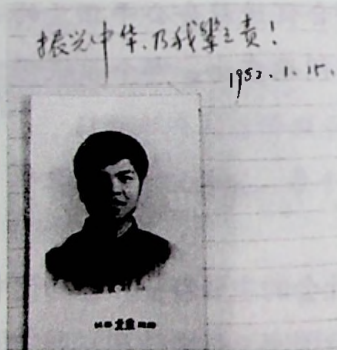 振兴中华、乃我辈之责!
1983.1.15.
北京